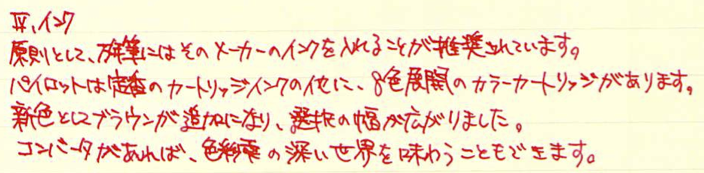 Ⅳ.インク
原則として、万年筆にはそのメーカーのインクを入れることが推奨されています。
パイロットは定番のカートリッジインクの他に、8色展開のカラーカートリッジがあります。
新色としてブラウンが追加になり、選択の幅が広がりました。
コンバータがあれば、色彩雫の深い世界を味わうこともできます。